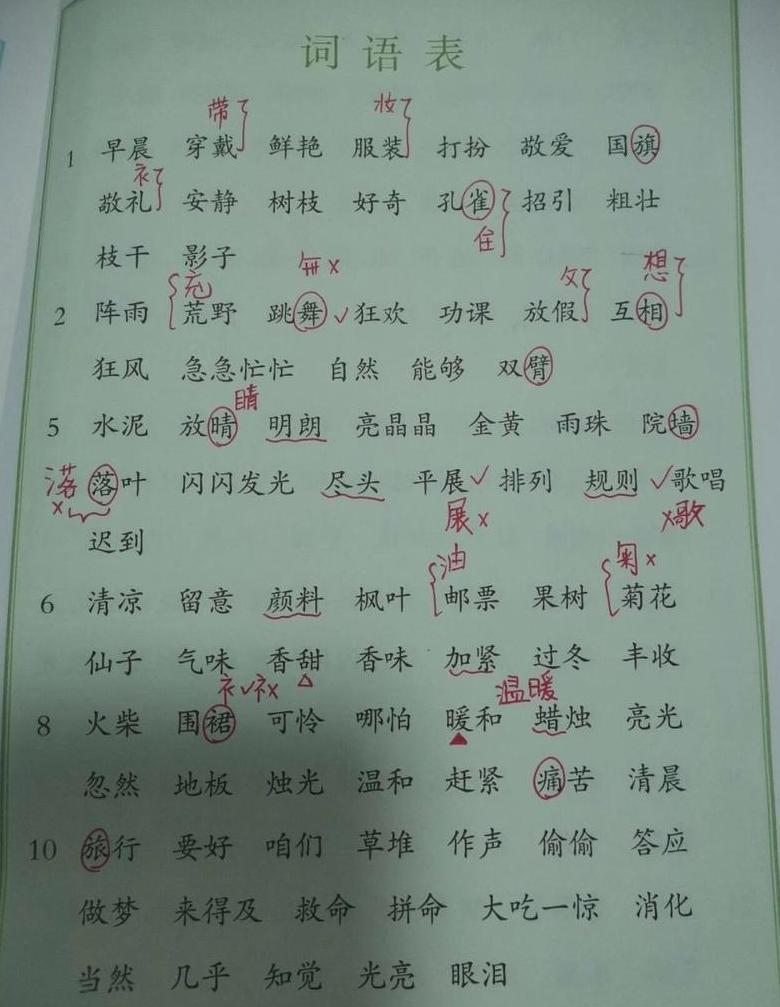 词语表
带 妆
1 早晨 穿戴 鲜艳 服装 打扮 敬爱 国旗
衤
敬礼 安静 树枝 好奇 孔雀 招引 粗壮
枝干 影子
充 x 攵 想
2 阵雨 荒野 跳舞 ✓ 狂欢 功课 放假 互相
狂风 急急忙忙 自然 能够 双臂
睛
5 水泥 放晴 明朗 亮晶晶 金黄 雨珠 院墙
落叶 闪闪发光 尽头 平展 ✓ 排列 规则 ✓ 歌唱
x 展 x x歌
迟到
油 x
6 清凉 留意 颜料 枫叶 邮票 果树 菊花
仙子 气味 香甜 香味 加紧 过冬 丰收
衤✓ 礻x 温暖
8 火柴 围裙 可怜 哪怕 暖和 蜡烛 亮光
忽然 地板 烛光 温和 赶紧 痛苦 清晨
10 旅行 要好 咱们 草堆 作声 偷偷 答应
做梦 来得及 救命 拼命 大吃一惊 消化
当然 几乎 知觉 光亮 眼泪